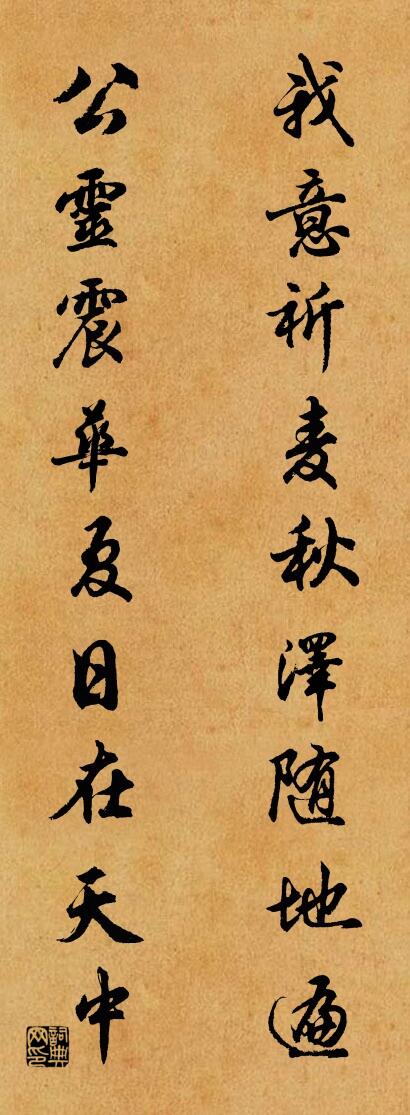 我意祈麦秋澤随地遍
公靈震華夏日在天中
詞典网印